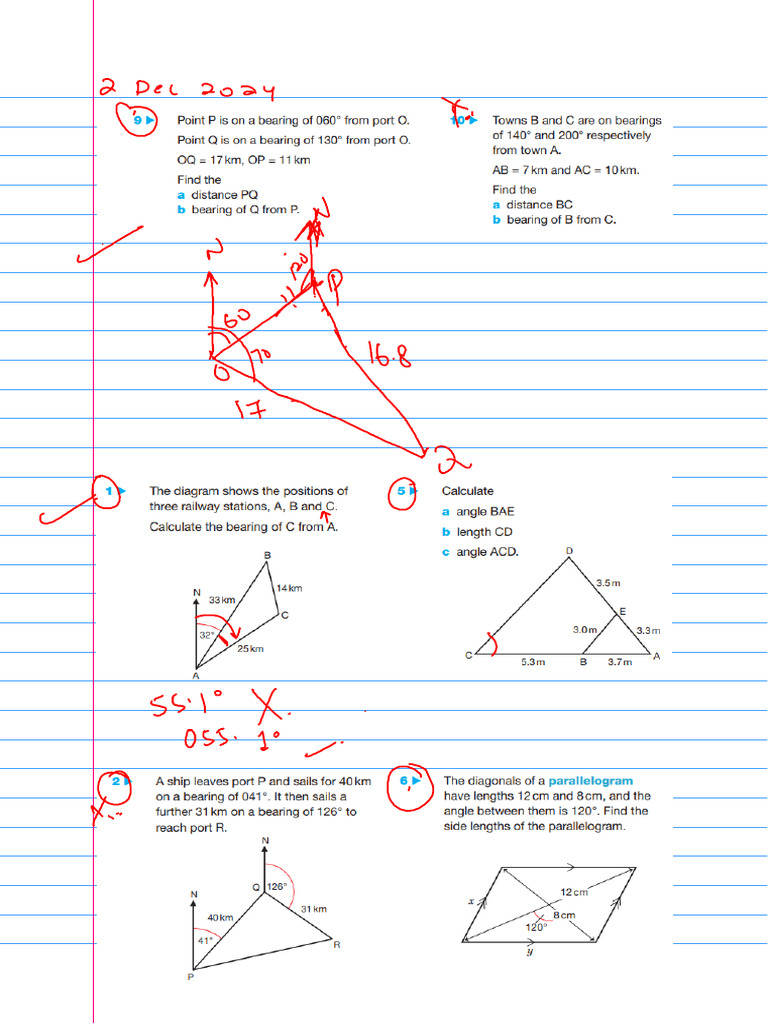 2 Dec 2024
9 ▶ Point P is on a bearing of 060° from port O.
Point Q is on a bearing of 130° from port O.
OQ = 17 km, OP = 11 km
Find the
a distance PQ
b bearing of Q from P.
10 ▶ Towns B and C are on bearings
of 140° and 200° respectively
from town A.
AB = 7 km and AC = 10 km.
Find the
a distance BC
b bearing of B from C.
N
N
120
P
11
60
70
O
16.8
17
Q
1 ▶ The diagram shows the positions of
three railway stations, A, B and C.
Calculate the bearing of C from A.
B
N
33 km
14 km
C
32°
25 km
A
55.1° X
055.1°
5 ▶ Calculate
a angle BAE
b length CD
c angle ACD.
D
3.5 m
E
3.0 m
3.3 m
C
5.3 m
B
3.7 m
A
2 ▶ A ship leaves port P and sails for 40 km
on a bearing of 041°. It then sails a
further 31 km on a bearing of 126° to
reach port R.
N
N
Q
126°
40 km
31 km
41°
R
P
6 ▶ The diagonals of a parallelogram
have lengths 12 cm and 8 cm, and the
angle between them is 120°. Find the
side lengths of the parallelogram.
12 cm
x
8 cm
120°
y